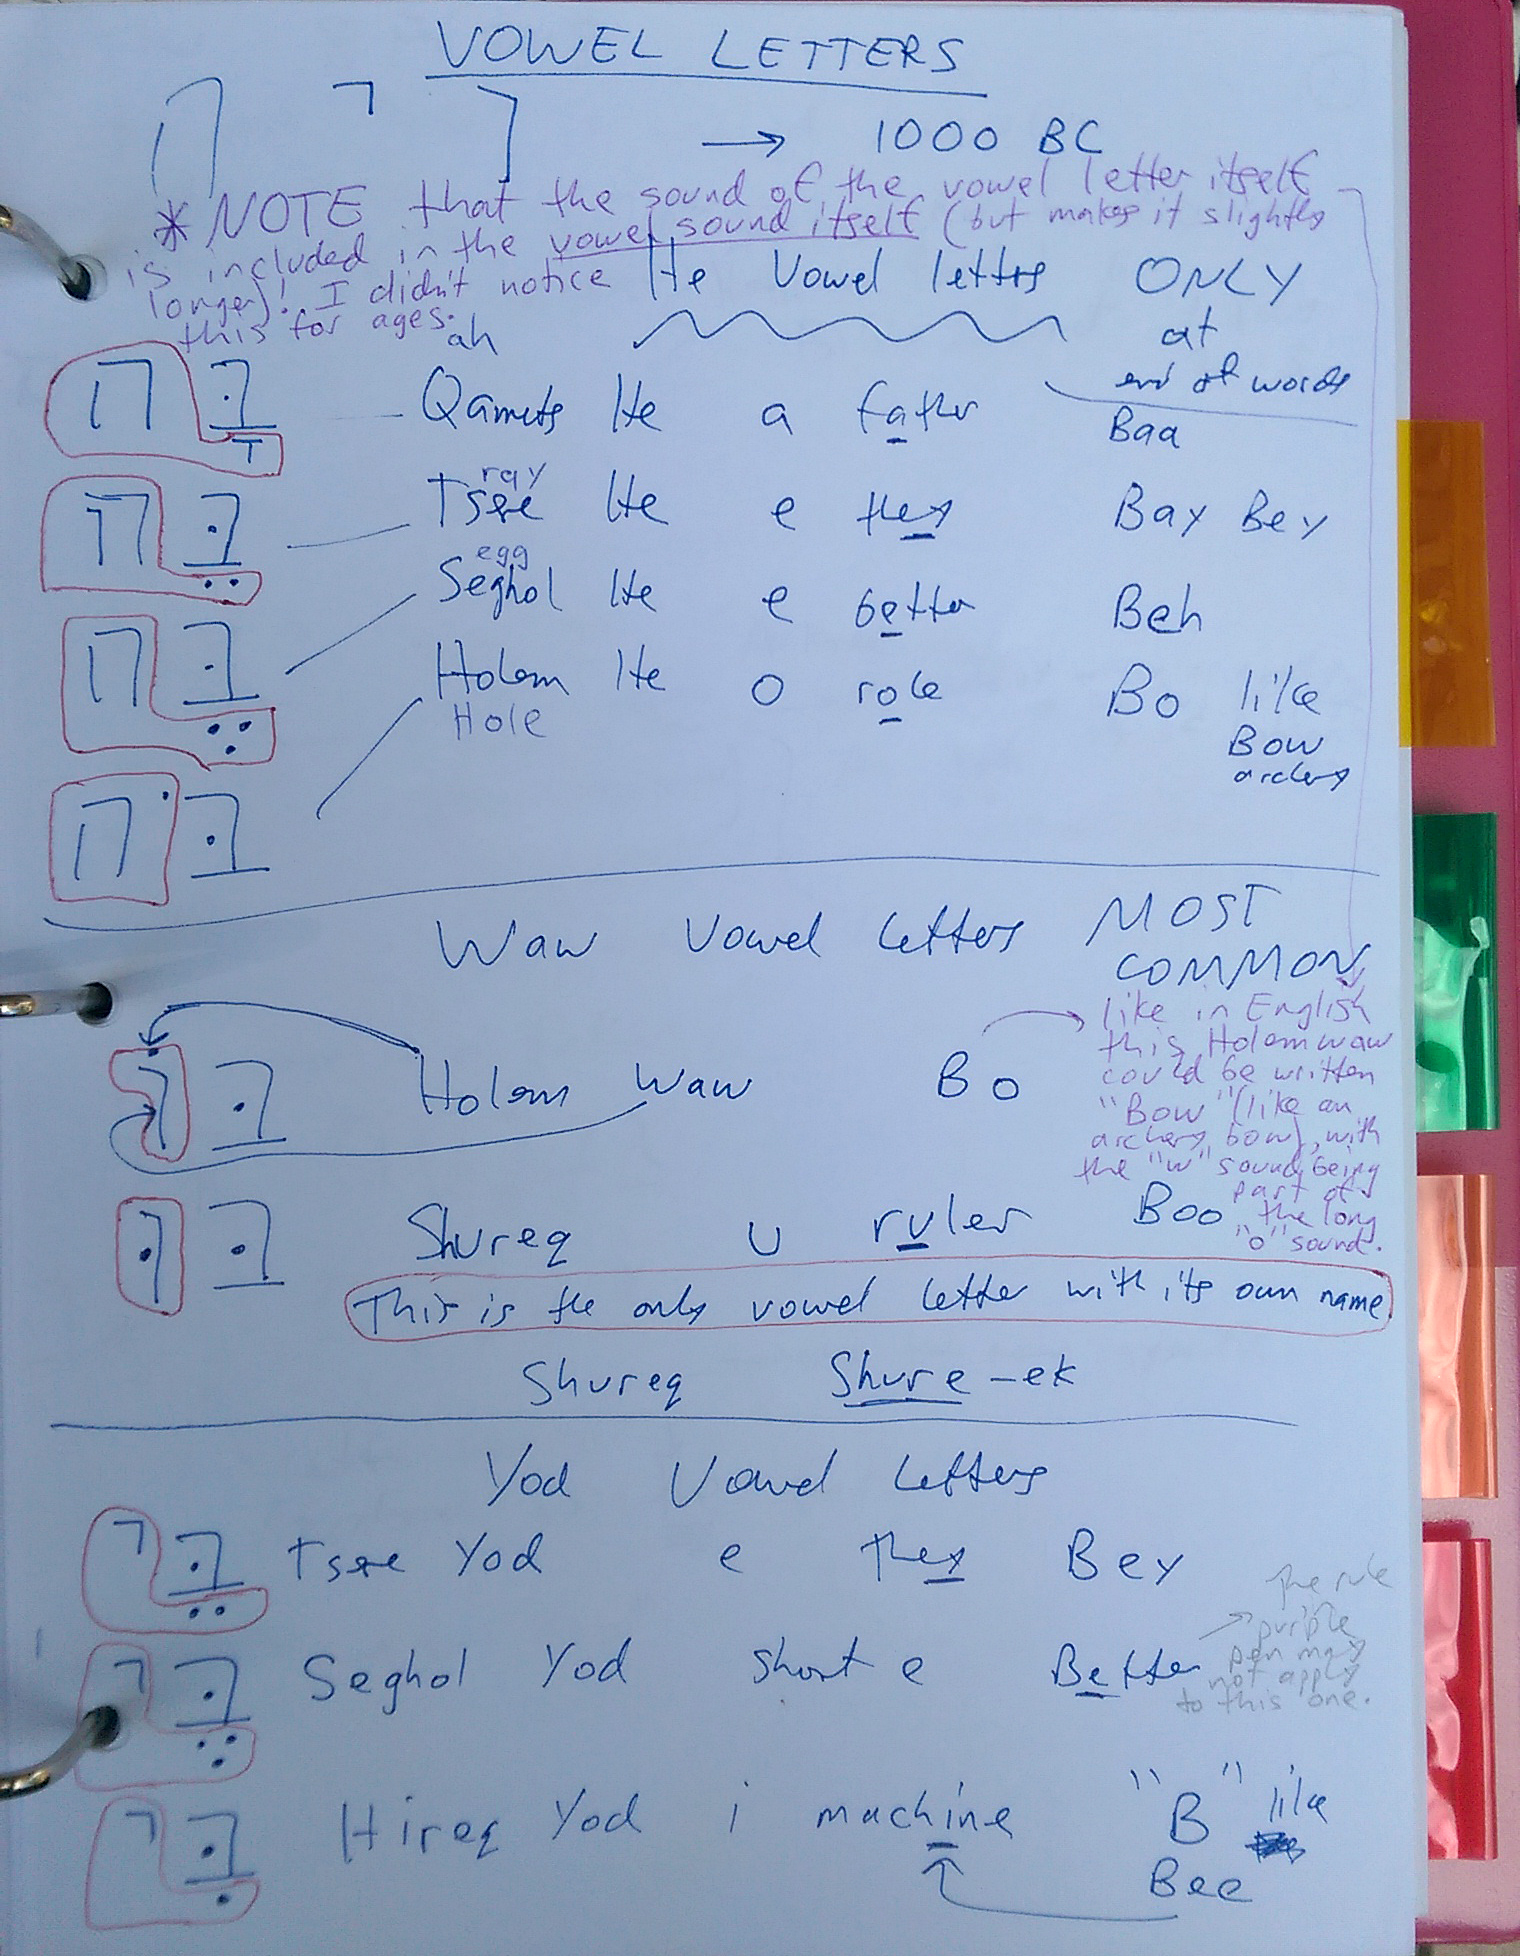 VOWEL LETTERS
ה י ו → 1000 BC
* NOTE that the sound of the vowel letter itself
is included in the vowel sound itself (but makes it slightly
longer)! I didn't notice
this for ages.
He Vowel letters ONLY
at
end of words
ah
בָּה Qamets He a father Baa
ray
בֵּה Tsere He e they Bay Bey
egg
בֶּה Seghol He e better Beh
בֹּה Holem He o role Bo like
Hole
Bow
archery
Waw Vowel Letters MOST
COMMON
בּוֹ Holem Waw Bo
like in English
this Holem waw
could be written
"Bow" (like an
archers bow), with
the "w" sound being
part of
the long
"o" sound.
בּוּ Shureq u ruler Boo
This is the only vowel letter with its own name
Shureq Shure-ek
Yod Vowel Letters
בֵּי Tsere Yod e they Bey
בֶּי Seghol Yod short e Better
The rule
purple
pen may
not apply
to this one.
בִּי Hireq Yod i machine "B" like
Bee